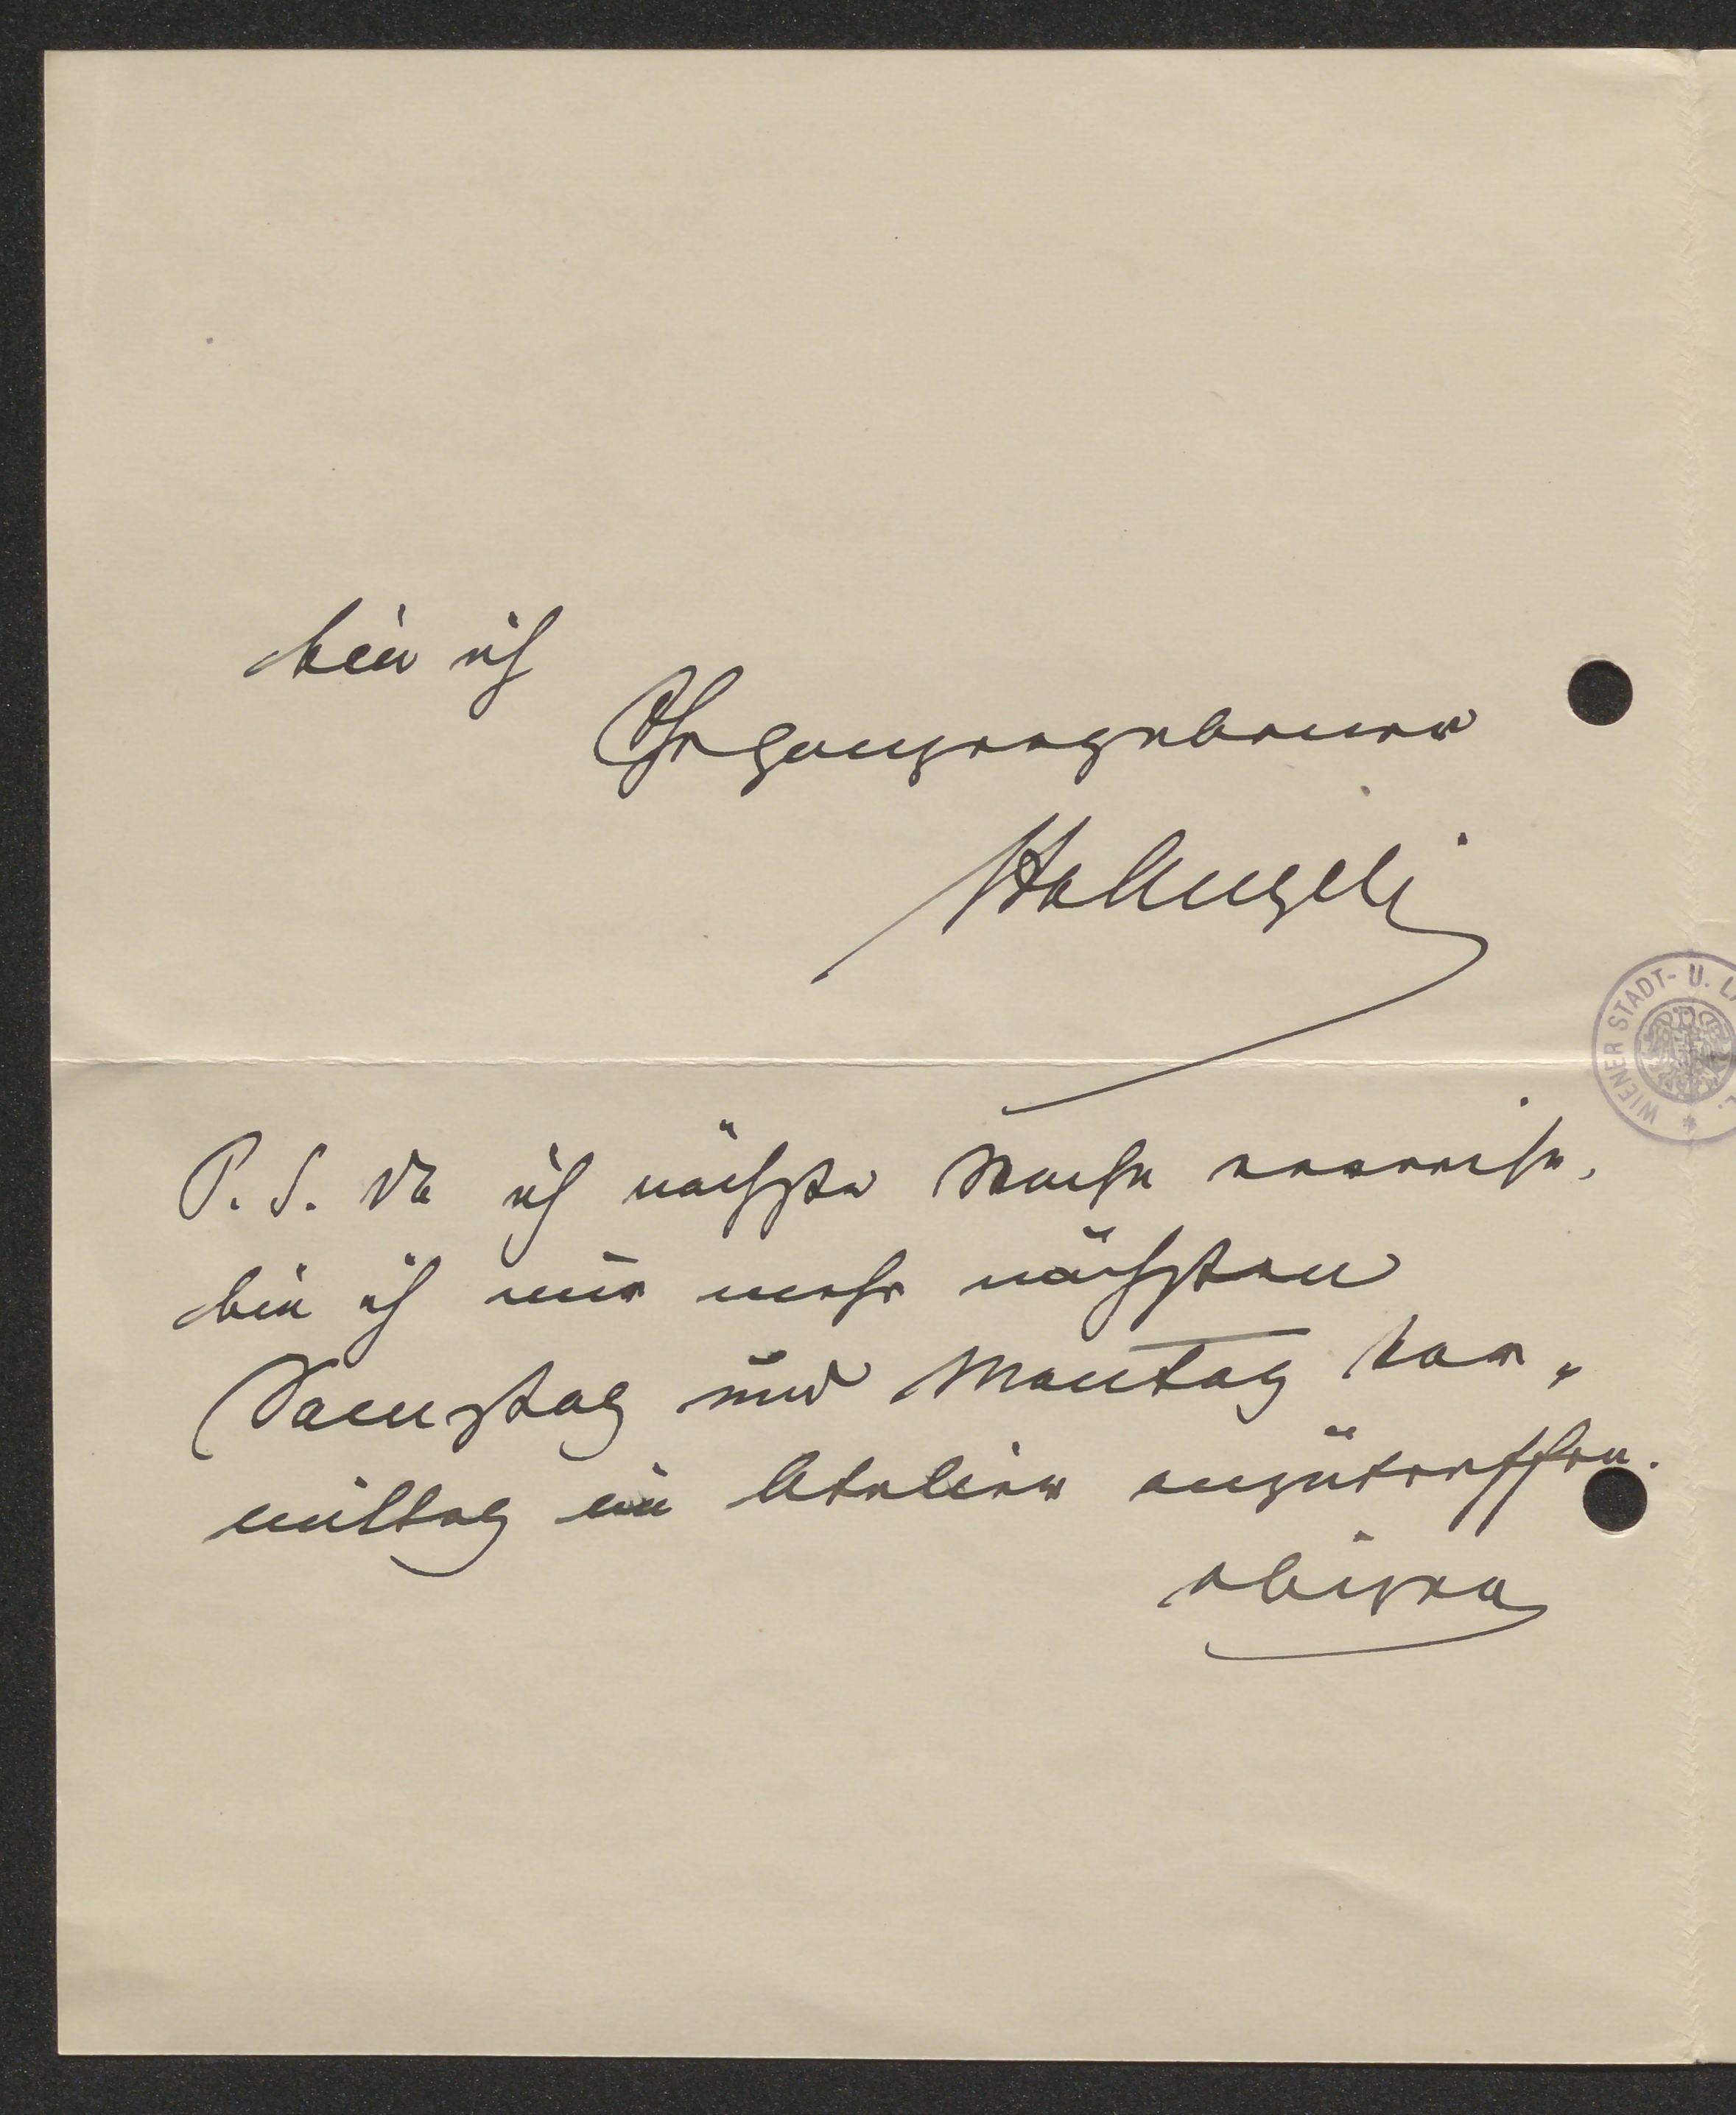 bin ich
Ihr ganz ergebener
HvAngeli
P. S. Da ich nächste Woche verreise,
bin ich nur mehr nächsten
Samstag und Montag Vor„
mittag im Atelier anzutreffen.
obiger
WIENER STADT- U. L